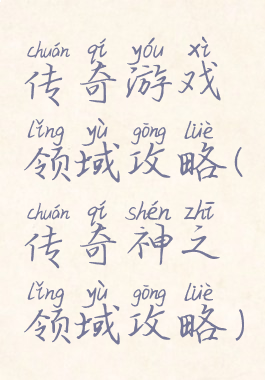 chuán qí yóu xì
传奇游戏
lǐng yù gōng lüè
领域攻略(
chuán qí shén zhī
传奇神之
lǐng yù gōng lüè
领域攻略)